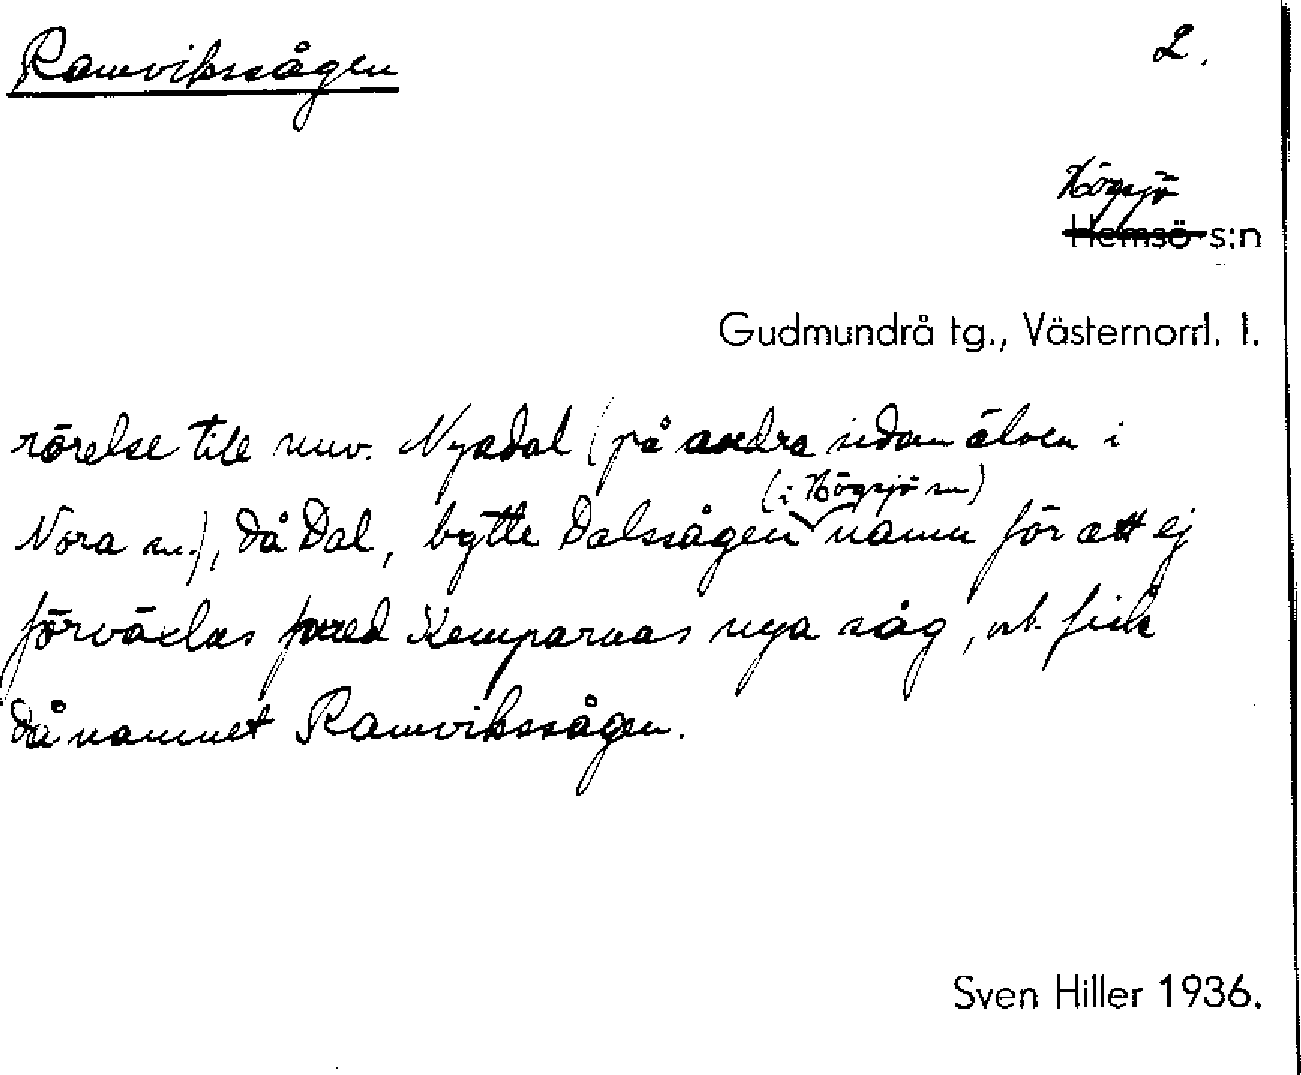 Ramvikssågen
2.
Högsjö
Hemsö s:n
Gudmundrå tg., Västernorrl. l.
rörelse till nuv. Nyadal (på andra sidan älven i
(i Högsjö sn)
Nora sn.), då Dal, bytte Dalssågen namn för att ej
förväxlas med Kemparnas nya såg, och fick
då namnet Ramvikssågen.
Sven Hiller 1936.